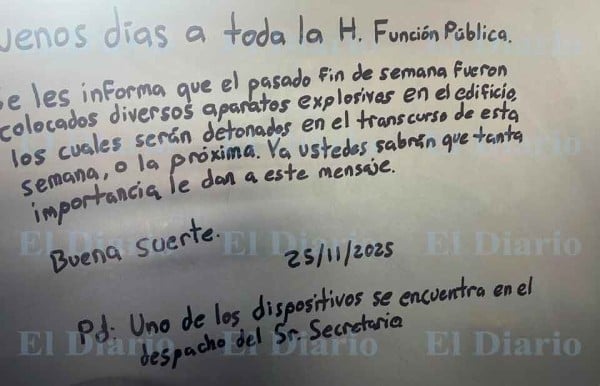 uenos días a toda la H. Función Pública.
e les informa que el pasado fin de semana fueron
colocados diversos aparatos explosivos en el edificio,
los cuales serán detonados en el transcurso de esta
semana, o la próxima. Ya ustedes sabrán que tanta
importancia le dan a este mensaje.
Buena suerte.
25/11/2025
Pd: Uno de los dispositivos se encuentra en el
despacho del Sr. Secretario
El Diario El Diario El Diario
El Diario El Diario El Diario